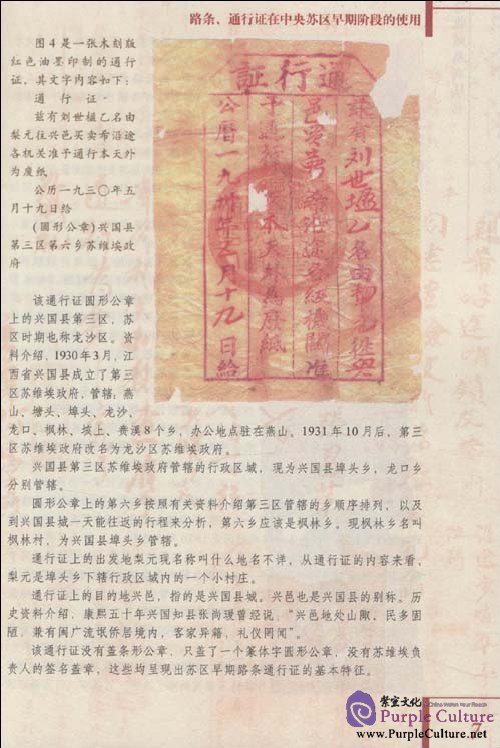 路条、通行证在中央苏区早期阶段的使用
图4是一张木刻版
红色油墨印制的通行
证，其文字内容如下：
通 行 证
兹有刘世榅乙名由
梨元往兴邑买卖希沿途
各机关准予通行本天外
为废纸
公历一九三〇年五
月十九日给
(圆形公章)兴国县
第三区第六乡苏维埃政
府
通行証
茲有刘世塭乙名由梨元徃興
邑買賣希沿途各級機關准
予通行本天外爲廢紙
公曆一九卅年五月十九日給
该通行证圆形公章
上的兴国县第三区，苏
区时期也称龙沙区。资
料介绍，1930年3月，江
西省兴国县成立了第三
区苏维埃政府，管辖：燕
山、塘头、埠头、龙沙、
龙口、枫林、垓上、贵溪8个乡，办公地点驻在燕山。1931年10月后，第三
区苏维埃政府改名为龙沙区苏维埃政府。
兴国县第三区苏维埃政府管辖的行政区域，现为兴国县埠头乡，龙口乡
分别管辖。
圆形公章上的第六乡按照有关资料介绍第三区管辖的乡顺序排列，以及
到兴国县城一天能往返的行程来分析，第六乡应该是枫林乡。现枫林乡名叫
枫林村，为兴国县埠头乡管辖。
通行证上的出发地梨元现名称叫什么地名不详，从通行证的内容来看，
梨元是埠头乡下辖行政区域内的一个小村庄。
通行证上的目的地兴邑，指的是兴国县城。兴邑也是兴国县的别称。历
史资料介绍，康熙五十年兴国知县张尚瑗曾经说，“兴邑地处山陬，民多固
陋，兼有闽广流氓侨居境内，客家异籍，礼仪罔闻”。
该通行证没有盖条形公章，只盖了一个篆体字圆形公章，没有苏维埃负
责人的签名盖章，这些均呈现出苏区早期路条通行证的基本特征。
7
紫室文化 China Within Your Reach
Purple Culture
www.PurpleCulture.net